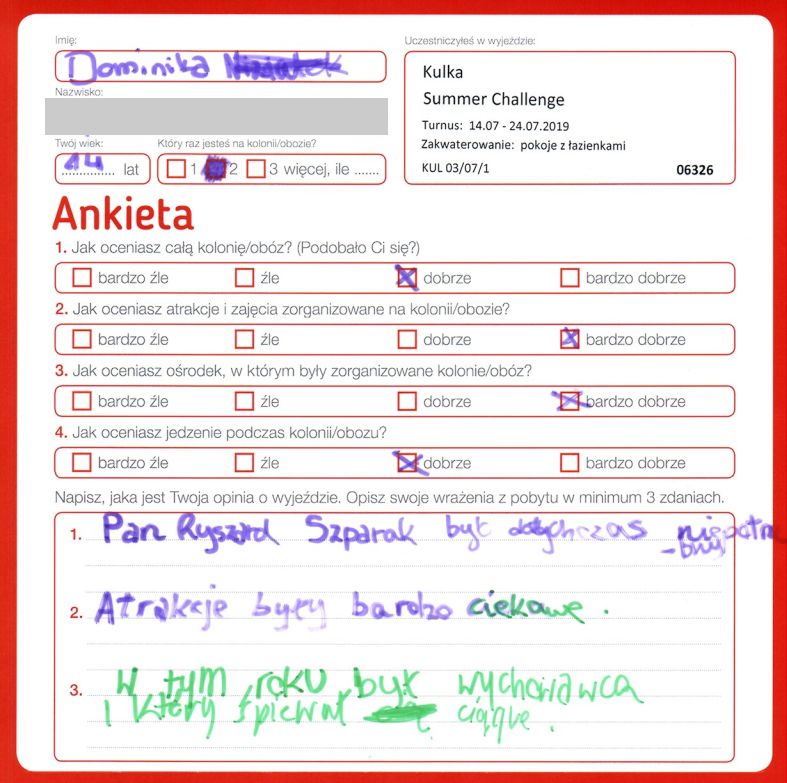 Imię:
Dominika
Nazwisko:
Twój wiek:
14 lat
Który raz jesteś na kolonii/obozie?
1 2 3 więcej, ile .......
Uczestniczyłeś w wyjeździe:
Kulka
Summer Challenge
Turnus: 14.07 - 24.07.2019
Zakwaterowanie: pokoje z łazienkami
KUL 03/07/1 06326
Ankieta
1. Jak oceniasz całą kolonię/obóz? (Podobało Ci się?)
bardzo źle źle dobrze bardzo dobrze
2. Jak oceniasz atrakcje i zajęcia zorganizowane na kolonii/obozie?
bardzo źle źle dobrze bardzo dobrze
3. Jak oceniasz ośrodek, w którym były zorganizowane kolonie/obóz?
bardzo źle źle dobrze bardzo dobrze
4. Jak oceniasz jedzenie podczas kolonii/obozu?
bardzo źle źle dobrze bardzo dobrze
Napisz, jaka jest Twoja opinia o wyjeździe. Opisz swoje wrażenia z pobytu w minimum 3 zdaniach.
1. Pan Ryszard Szparak był dotychczas niepotrze
-bny
2. Atrakcje były bardzo ciekawe.
3. W tym roku był wychowawca
który śpiewał ciągle.